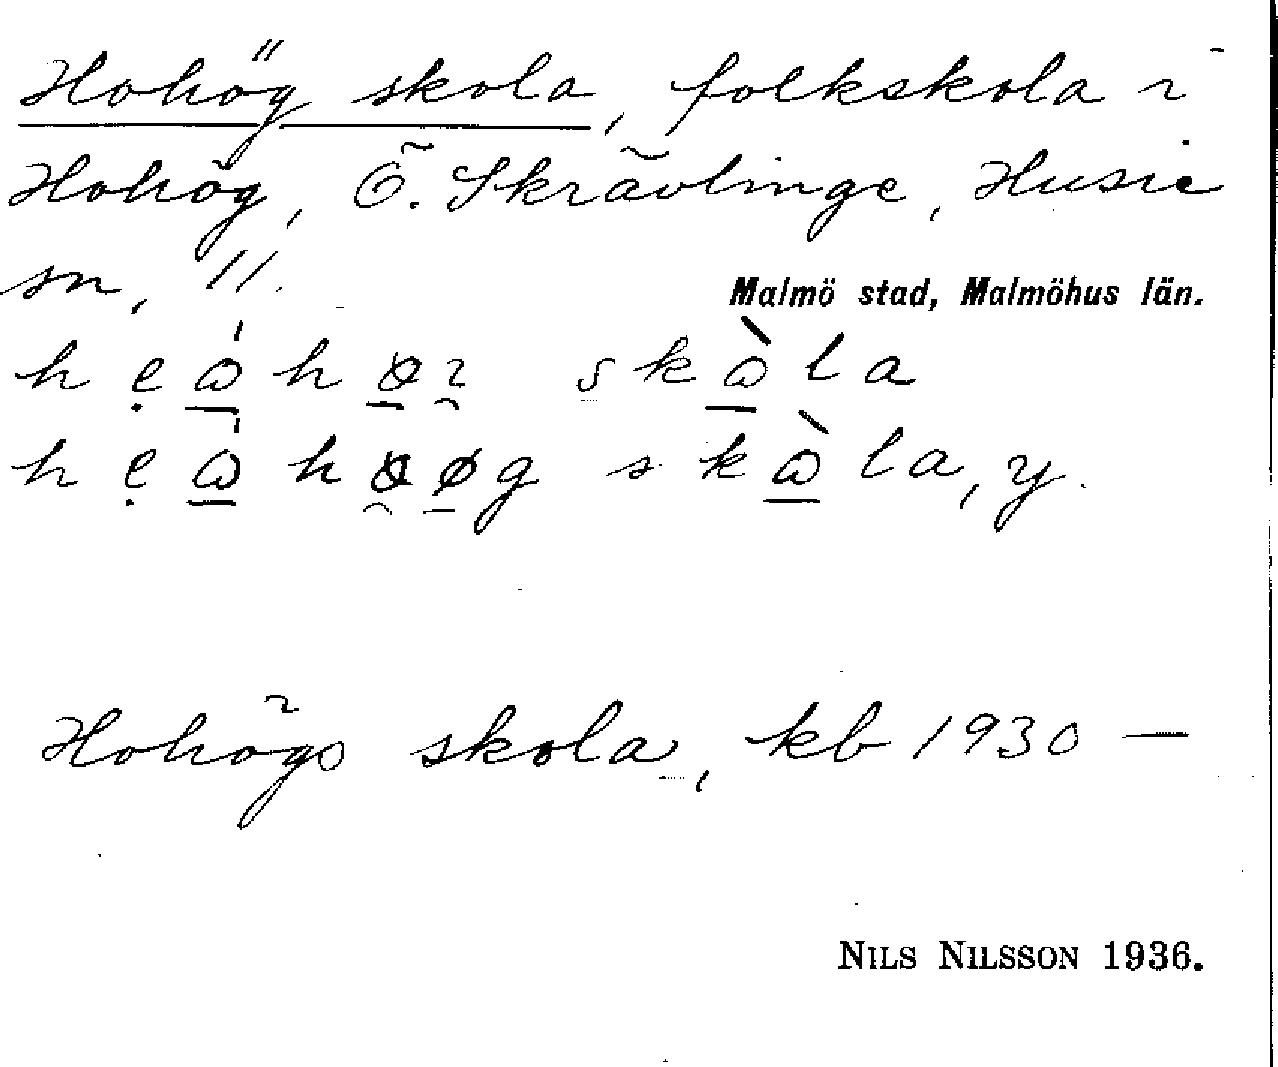 Hohög skola, folkskola i
Hohög, Ö. Skrävlinge, Husie
sn, 11.
Malmö stad, Malmöhus län.
Hohögs skola, kb 1930 —
NILS NILSSON 1936.